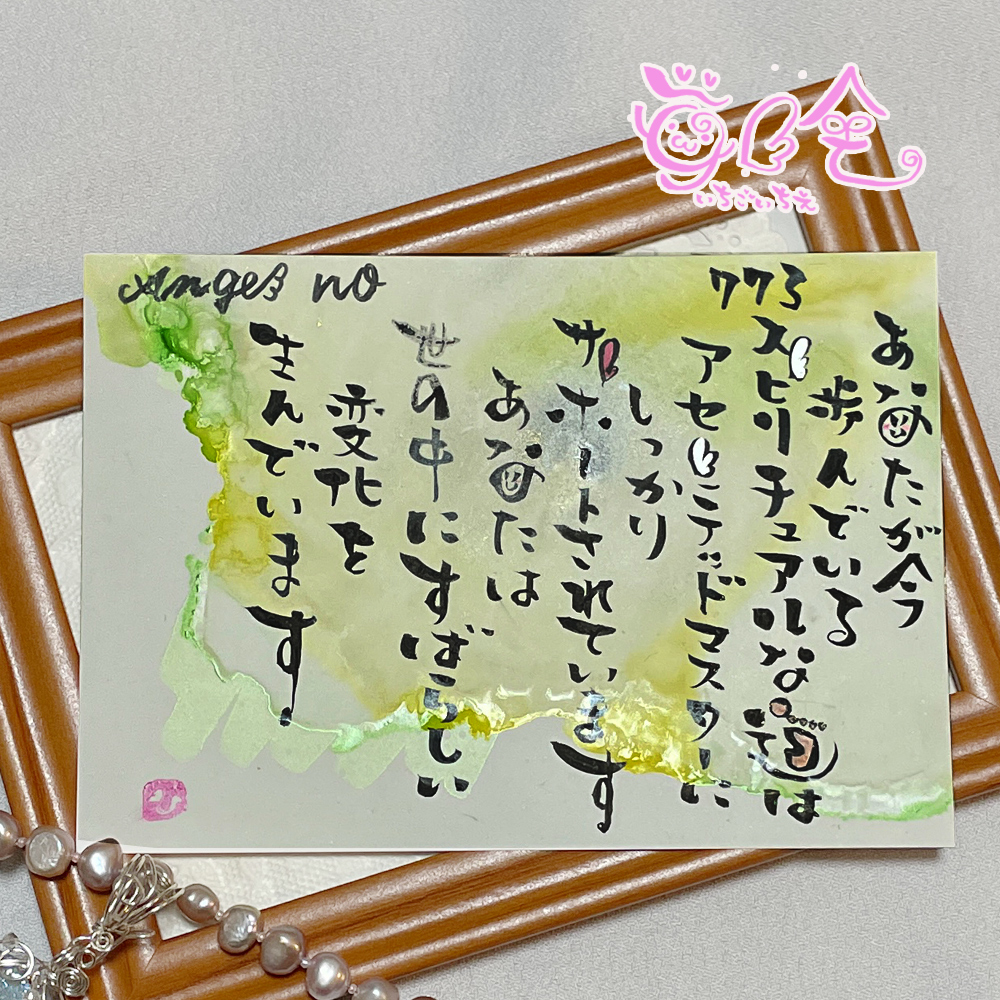 Angel no 773
あなたが今
歩んでいる
スピリチュアルな道は
アセンデッドマスターに
しっかり
サポートされています
あなたは
世の中にすばらしい
変化を
生んでいます
いちごいちえ